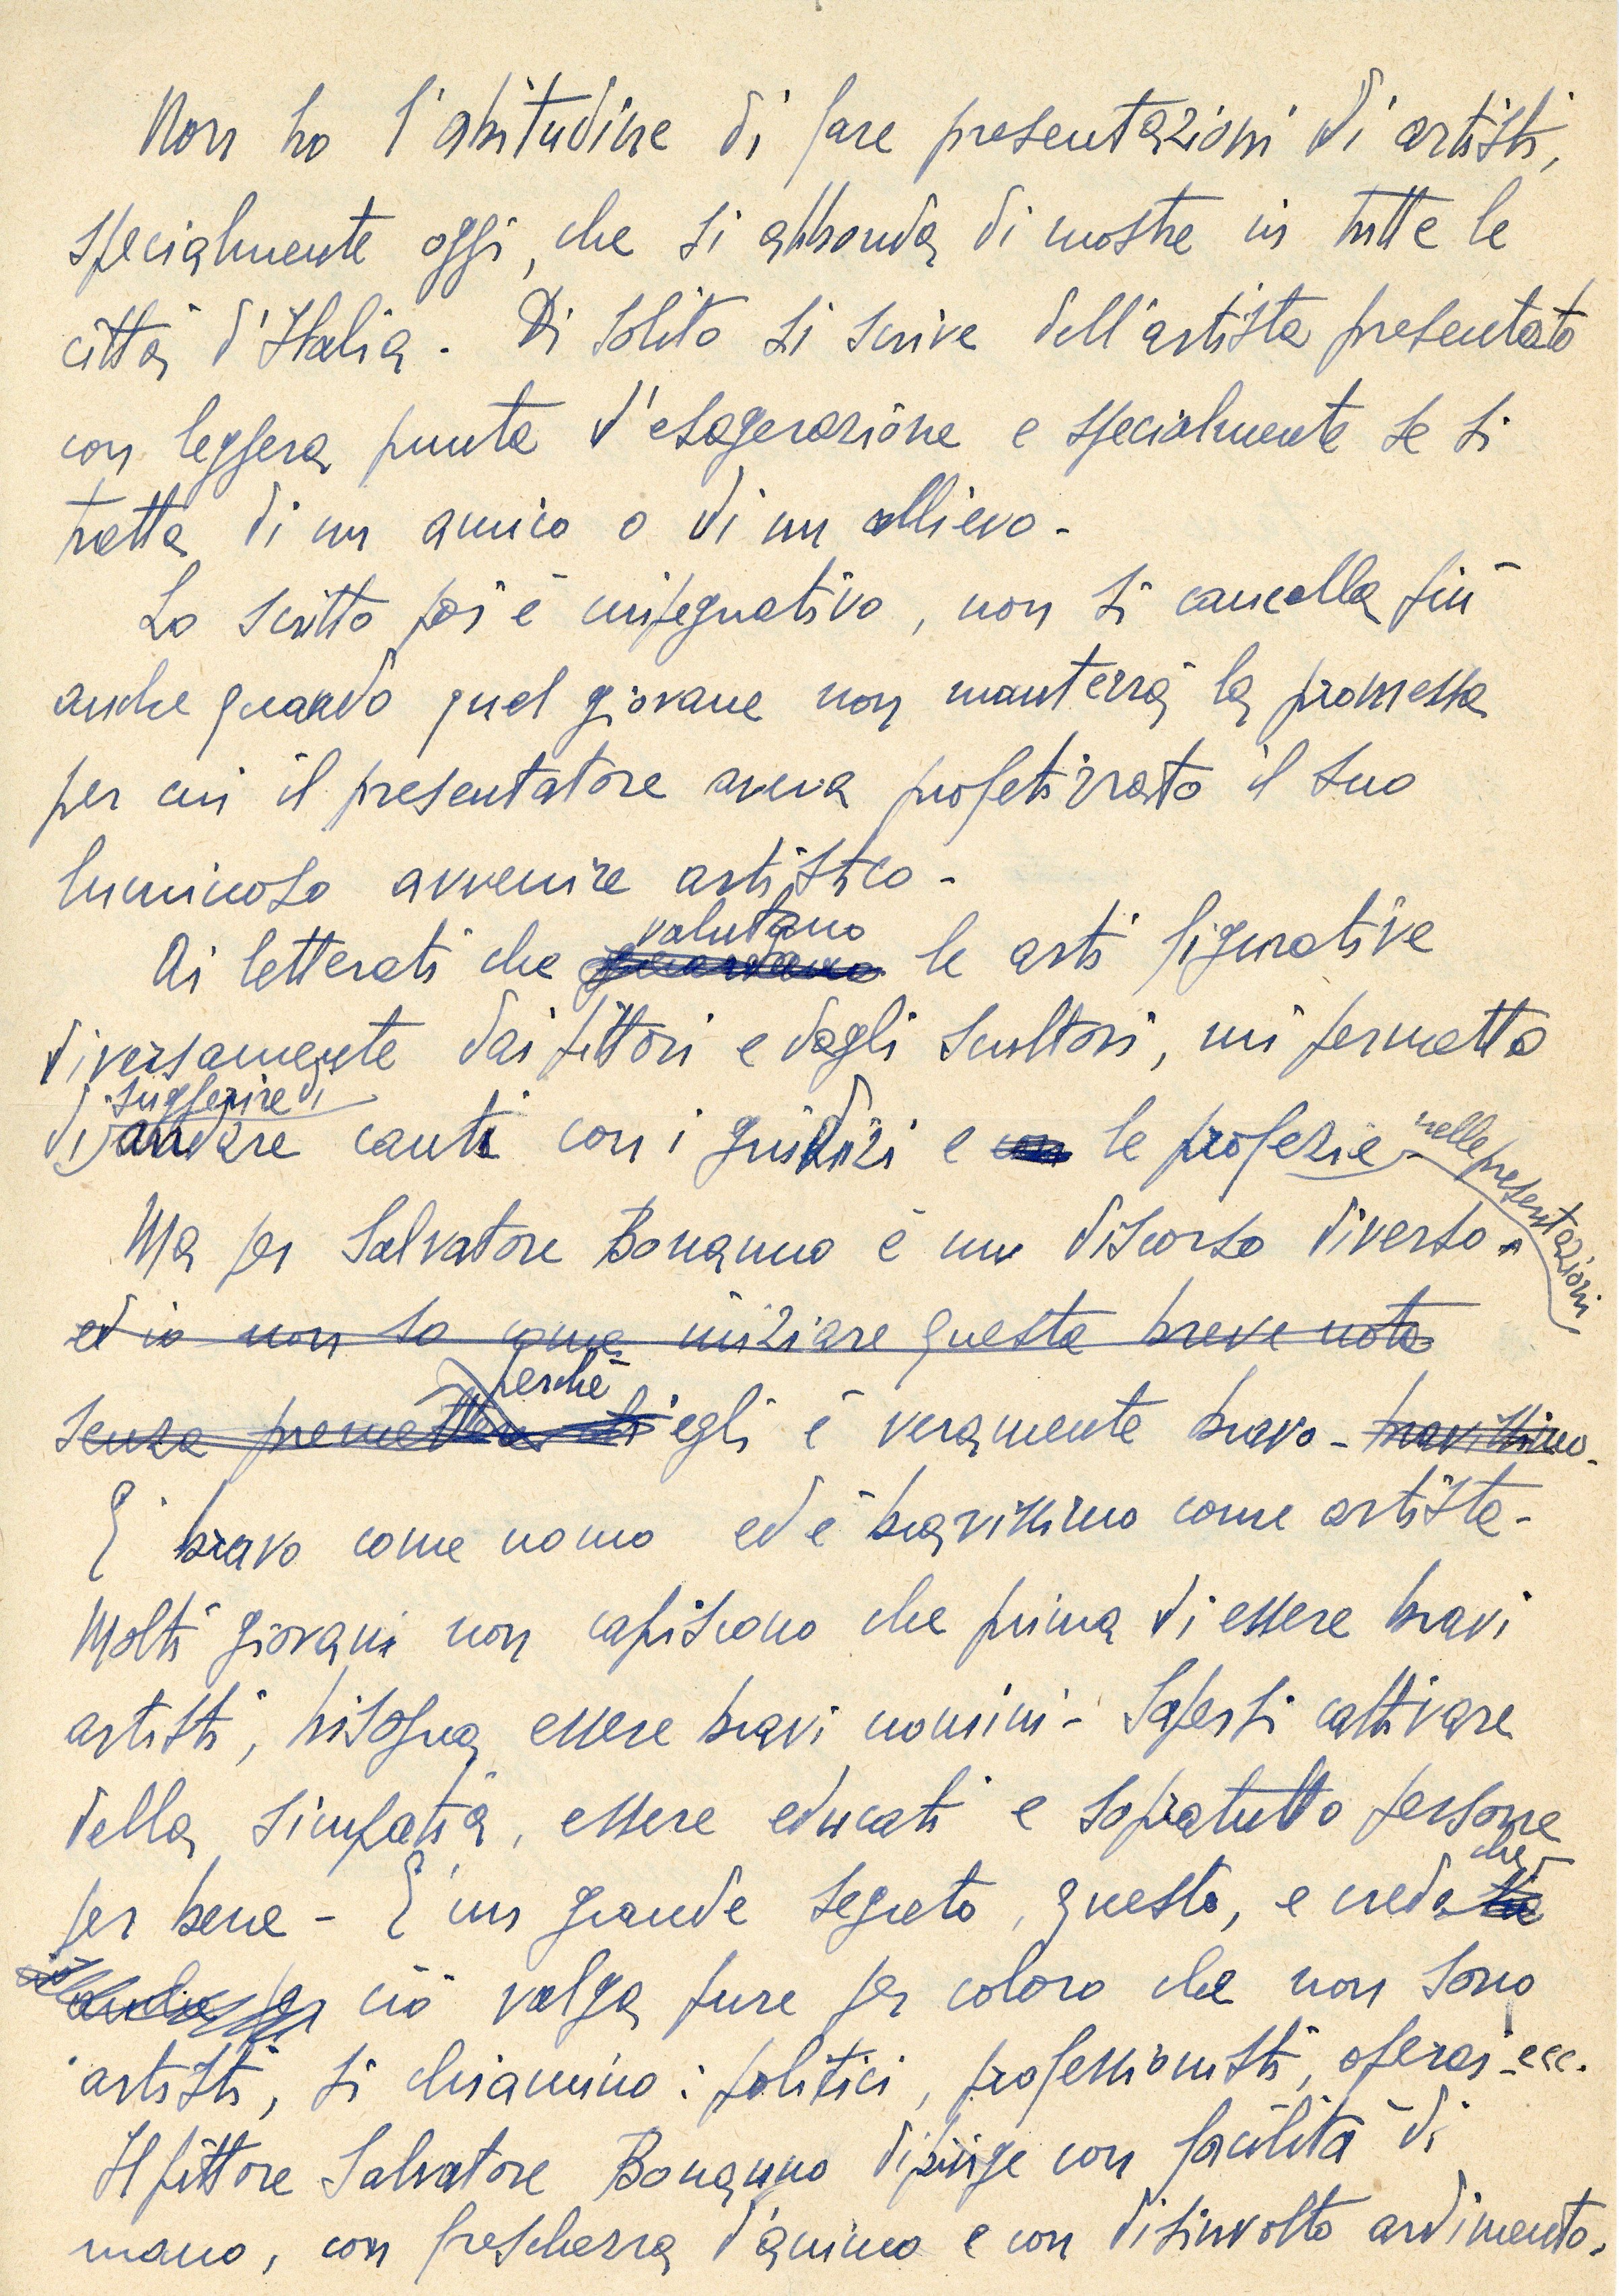 Non ho l'abitudine di fare presentazioni di artisti,
specialmente oggi, che si abbonda di mostre in tutte le
città d'Italia. Di solito si scrive dell'artista presentato
con leggera punta d'esagerazione e specialmente se si
tratta di un amico o di un allievo -
Lo scritto poi è impegnativo, non si cancella più
anche quando quel giovane non manterrà la promessa
per cui il presentatore aveva profetizzato il suo
luminoso avvenire artistico -
valutano
Ai letterati che guardano le arti figurative
diversamente dai pittori e dagli scultori, mi permetto
suggerire di
di andare cauti con i giudizi e con le profezie nelle presentazioni
Ma per Salvatore Bonanno è un discorso diverso.
ed io non so come iniziare questa breve nota
perchè
senza premettere egli è veramente bravo - bravissimo.
E' bravo come uomo ed è bravissimo come artista -
Molti giovani non capiscono che prima di essere bravi
artisti, bisogna essere bravi uomini - Sapersi cattivare
della simpatia, essere educati e sopratutto persone
per bene - E' un grande segreto, questo, e credo che
ciò valga pure per coloro che non sono
artisti, si chiamino: politici, professionisti, operai - ecc.
Il pittore Salvatore Bonanno dipinge con facilità di
mano, con freschezza d'animo e con disinvolto ardimento.